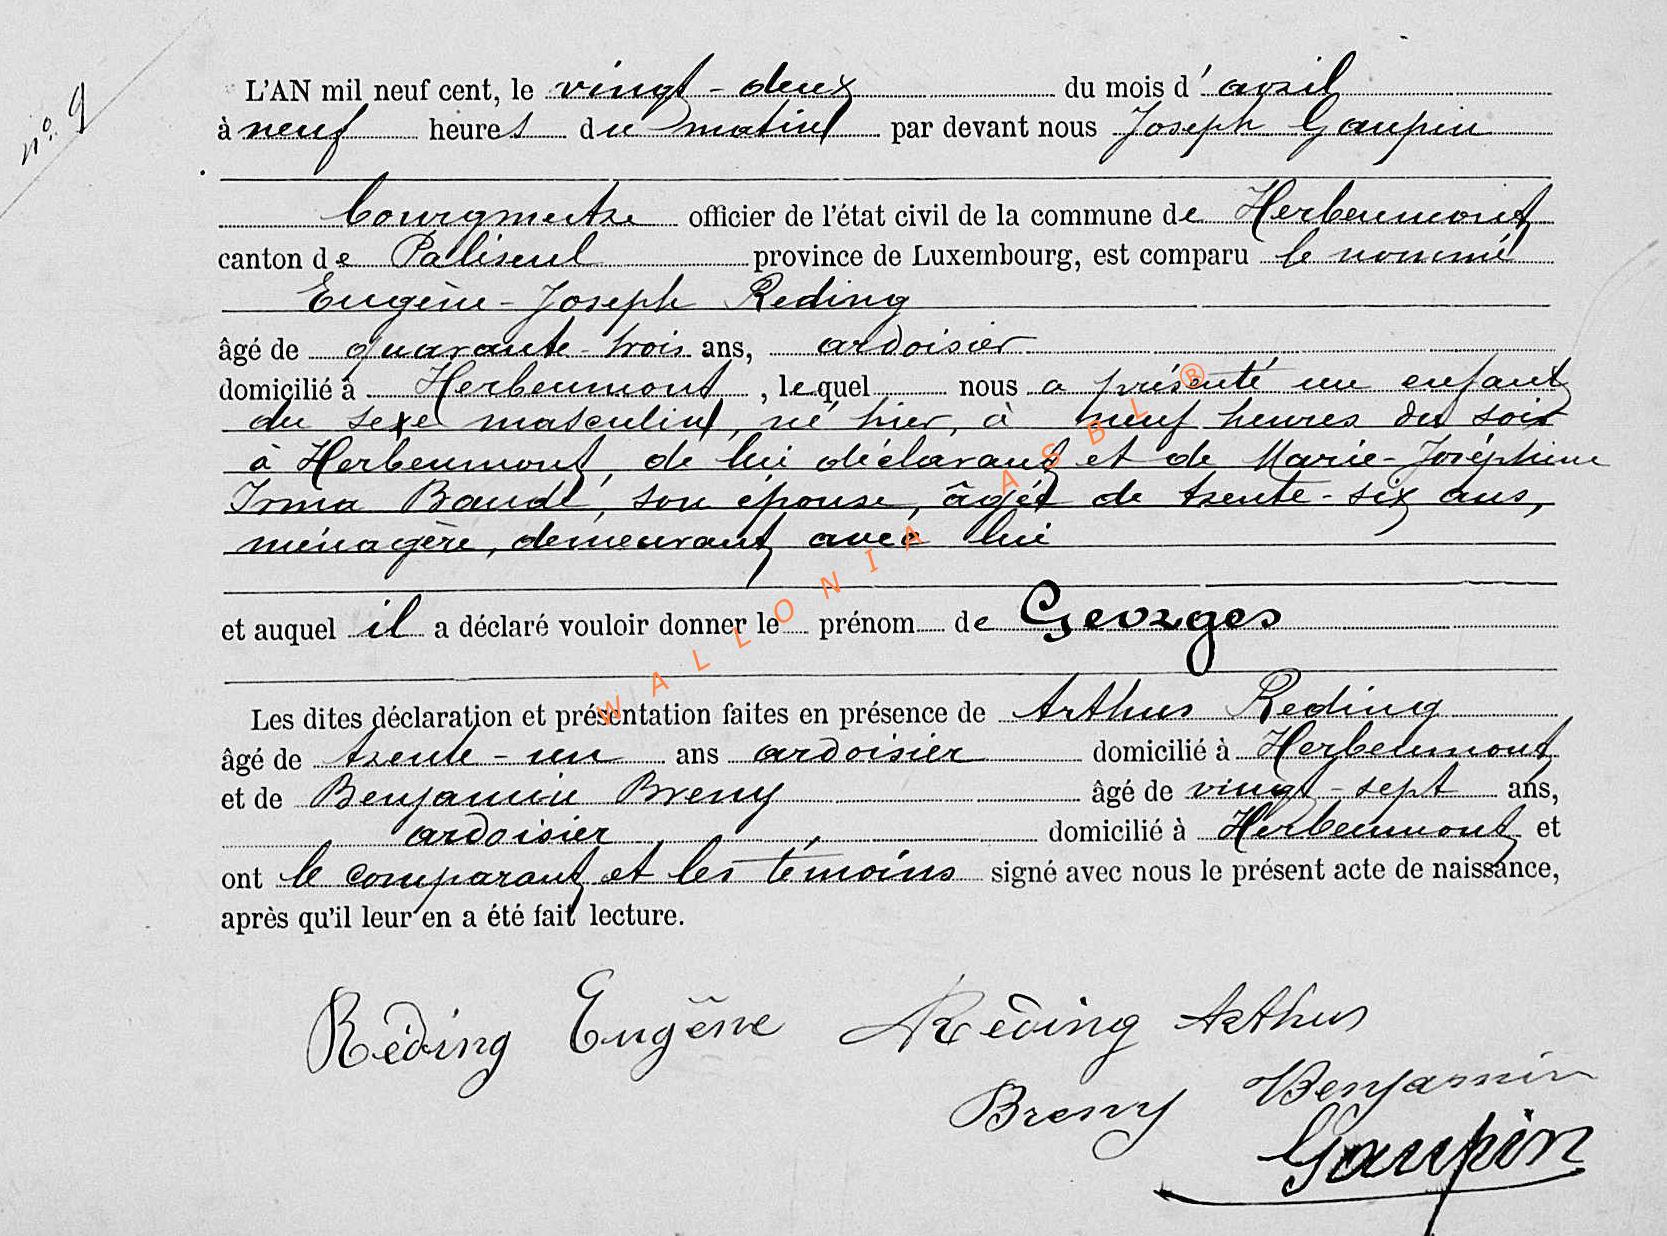 n° 9
L'AN mil neuf cent, le vingt-deux du mois d'avril
à neuf heures du matin par devant nous Joseph Gaupin
bourgmestre officier de l'état civil de la commune de Herbeumont
canton de Paliseul province de Luxembourg, est comparu le nommé
Eugène-Joseph Reding
âgé de quarante-trois ans, ardoisier
domicilié à Herbeumont, lequel nous a présenté un enfant
du sexe masculin, né hier, à neuf heures du soir
à Herbeumont, de lui déclarant et de Marie-Joséphine
Irma Baudé, son épouse, âgée de trente-six ans,
ménagère, demeurant avec lui
et auquel il a déclaré vouloir donner le prénom de Georges
Les dites déclaration et présentation faites en présence de Arthur Reding
âgé de trente-un ans ardoisier domicilié à Herbeumont
et de Benjamin Breny âgé de vingt-sept ans,
ardoisier domicilié à Herbeumont et
ont le comparant et les témoins signé avec nous le présent acte de naissance,
après qu'il leur en a été fait lecture.
Réding Eugène Réding Arthur
Breny Benjamin
Gaupin
WALLONIA ASBL ®